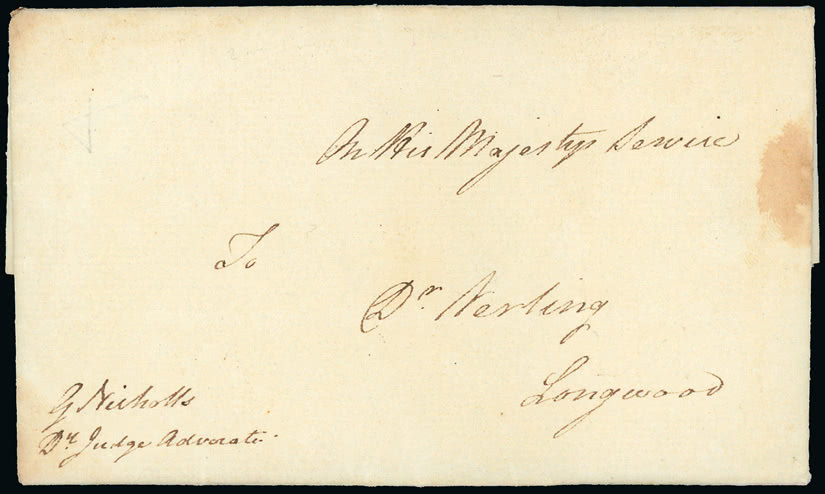 On His Majestys Service
To
Dr. Verling
Longwood
G Nicholls
Dy. Judge Advocate